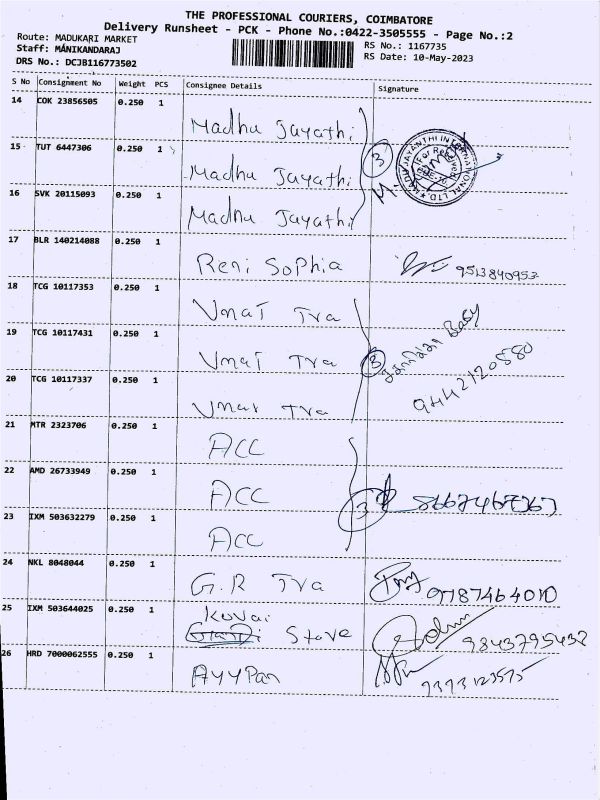 THE PROFESSIONAL COURIERS, COIMBATORE
Delivery Runsheet - PCK - Phone No.:0422-3505555 - Page No.:2
Route: MADUKARI MARKET
Staff: MANIKANDARAJ
DRS No.: DCJB116773502
RS No.: 1167735
RS Date: 10-May-2023
S No Consignment No Weight PCS Consignee Details Signature
14 COK 23856505 0.250 1 Madhu Jayathi
15 TUT 6447306 0.250 1 Madhu Jayathi 3
16 SVK 20115093 0.250 1 Madhu Jayathi
17 BLR 140214088 0.250 1 Reni Sophia 9513840953
18 TCG 10117353 0.250 1 Umat Tva
19 TCG 10117431 0.250 1 Umat Tva 3
20 TCG 10117337 0.250 1 Umat Tva 9442120580
21 MTR 2323706 0.250 1 ACC
22 AMD 26733949 0.250 1 ACC 3
23 IXM 503632279 0.250 1 ACC
24 NKL 8048044 0.250 1 G.R Tva 9787464010
25 IXM 503644025 0.250 1 Kovai Stove 9843795432
26 HRD 7000062555 0.250 1 Ayypan 7373123575